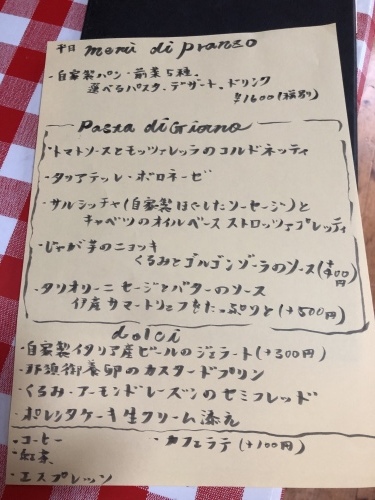 平日 menù di pranzo
・自家製パン・前菜5種、
選べるパスタ、デザート、ドリンク
¥1600(税別)
Pasta di Giorno
・トマトソースとモッツァレッラのコルドネッティ
・タリアテッレ・ボロネーゼ
・サルシッチャ(自家製ほぐしたソーセージ)と
キャベツのオイルベース ストロッツァプレッティ
・じゃが芋のニョッキ
くるみとゴルゴンゾーラのソース(+400円)
・タリオリーニ セージとバターのソース
伊産サマートリュフをたっぷりと(+500円)
dolci
・自家製イタリア産ビールのジェラート(+300円)
・那須御養卵のカスタードプリン
・くるみ・アーモンドレーズンのセミフレッド
・ポレンタケーキ生クリーム添え
・コーヒー ・カフェラテ(+100円)
・紅茶
・エスプレッソ